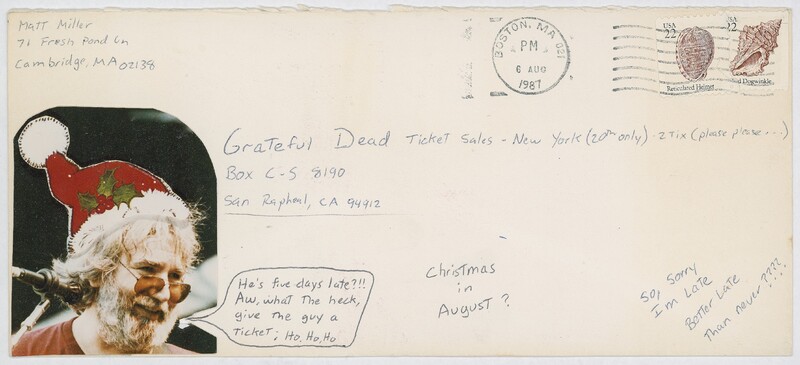 Matt Miller
71 Fresh Pond Ln
Cambridge, MA 02138
BOSTON, MA 021
PM
6 AUG
1987
USA
22
Reticulated Helmet
USA
22
Dogwinkle
Grateful Dead Ticket Sales - New York (20th only) - 2 Tix (please please...)
Box C-S 8190
San Raphael, CA 94912
He's five days late?!!
Aw, what the heck,
give the guy a
ticket; Ho, Ho, Ho
Christmas
in
August?
So, Sorry
I'm Late
Better Late
Than never????